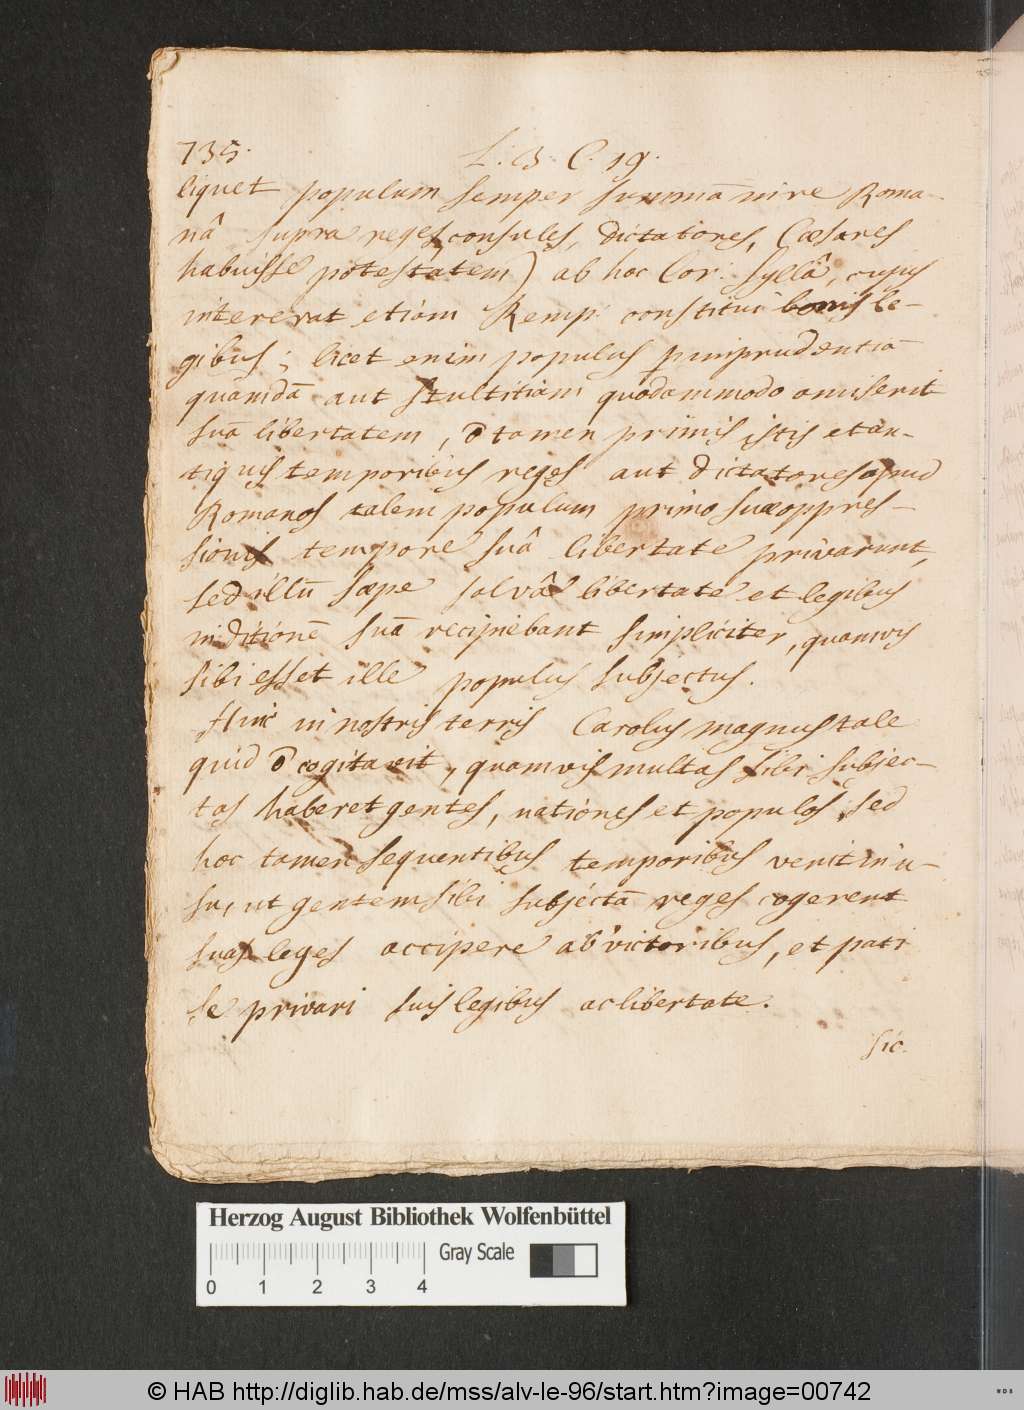 735.
L. 3. C. 19.
liquet populum semper summā in re Roma-
nâ supra reges, consules, dictatores, Cæsares
habuisse potestatem) ab hoc Cor: Syllâ, cujus
intererat etiam Remp: constitui bonis le-
gibus; licet enim populus p imprudentiā
quamdā aut stultitiam quodammodo amiserit
suā libertatem, ō tamen primis istis et an-
tiquis temporibus reges aut dictatores apud
Romanos talem populum primo suæ oppres-
sionis tempore suâ libertate privarunt,
sed illū sæpe salvâ libertate et legibus
in ditionē suā recipiebant simpliciter, quamvis
sibi esset ille populus subjectus.
Hinc in nostris terris Carolus magnus tale
quid ō cogitavit, quamvis multas sibi subjec-
tas haberet gentes, nationes et populos, sed
hoc tamen sequentibus temporibus venit in u-
su, ut gentem sibi subjectā reges cogerent
suas leges accipere ab victoribus, et pati
se privari suis legibus ac libertate.
sic.
Herzog August Bibliothek Wolfenbüttel
0 1 2 3 4
Gray Scale
© HAB http://diglib.hab.de/mss/alv-le-96/start.htm?image=00742